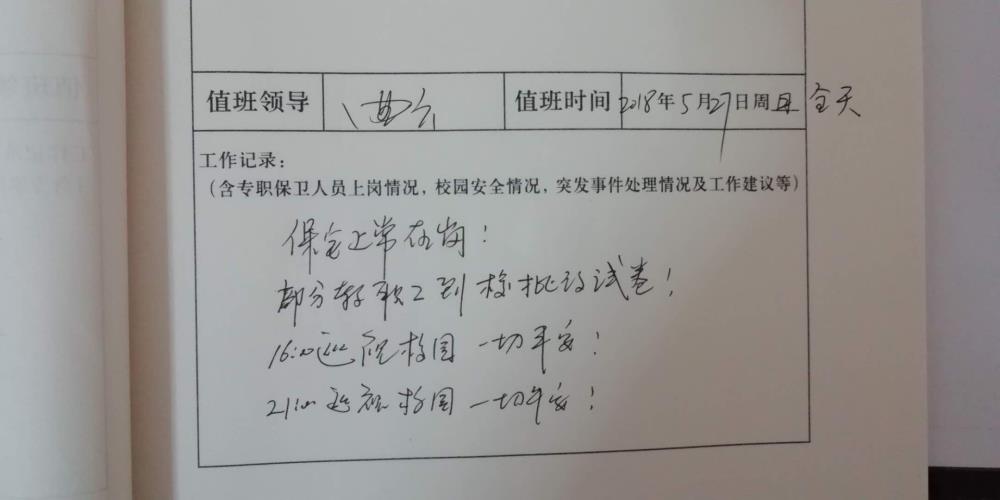 值班领导
值班时间 2018年5月27日周日 全天
工作记录：
（含专职保卫人员上岗情况，校园安全情况，突发事件处理情况及工作建议等）
保安正常在岗！
部分教职工到校批改试卷！
16:00巡视校园 一切平安！
21:00巡视校园 一切平安！